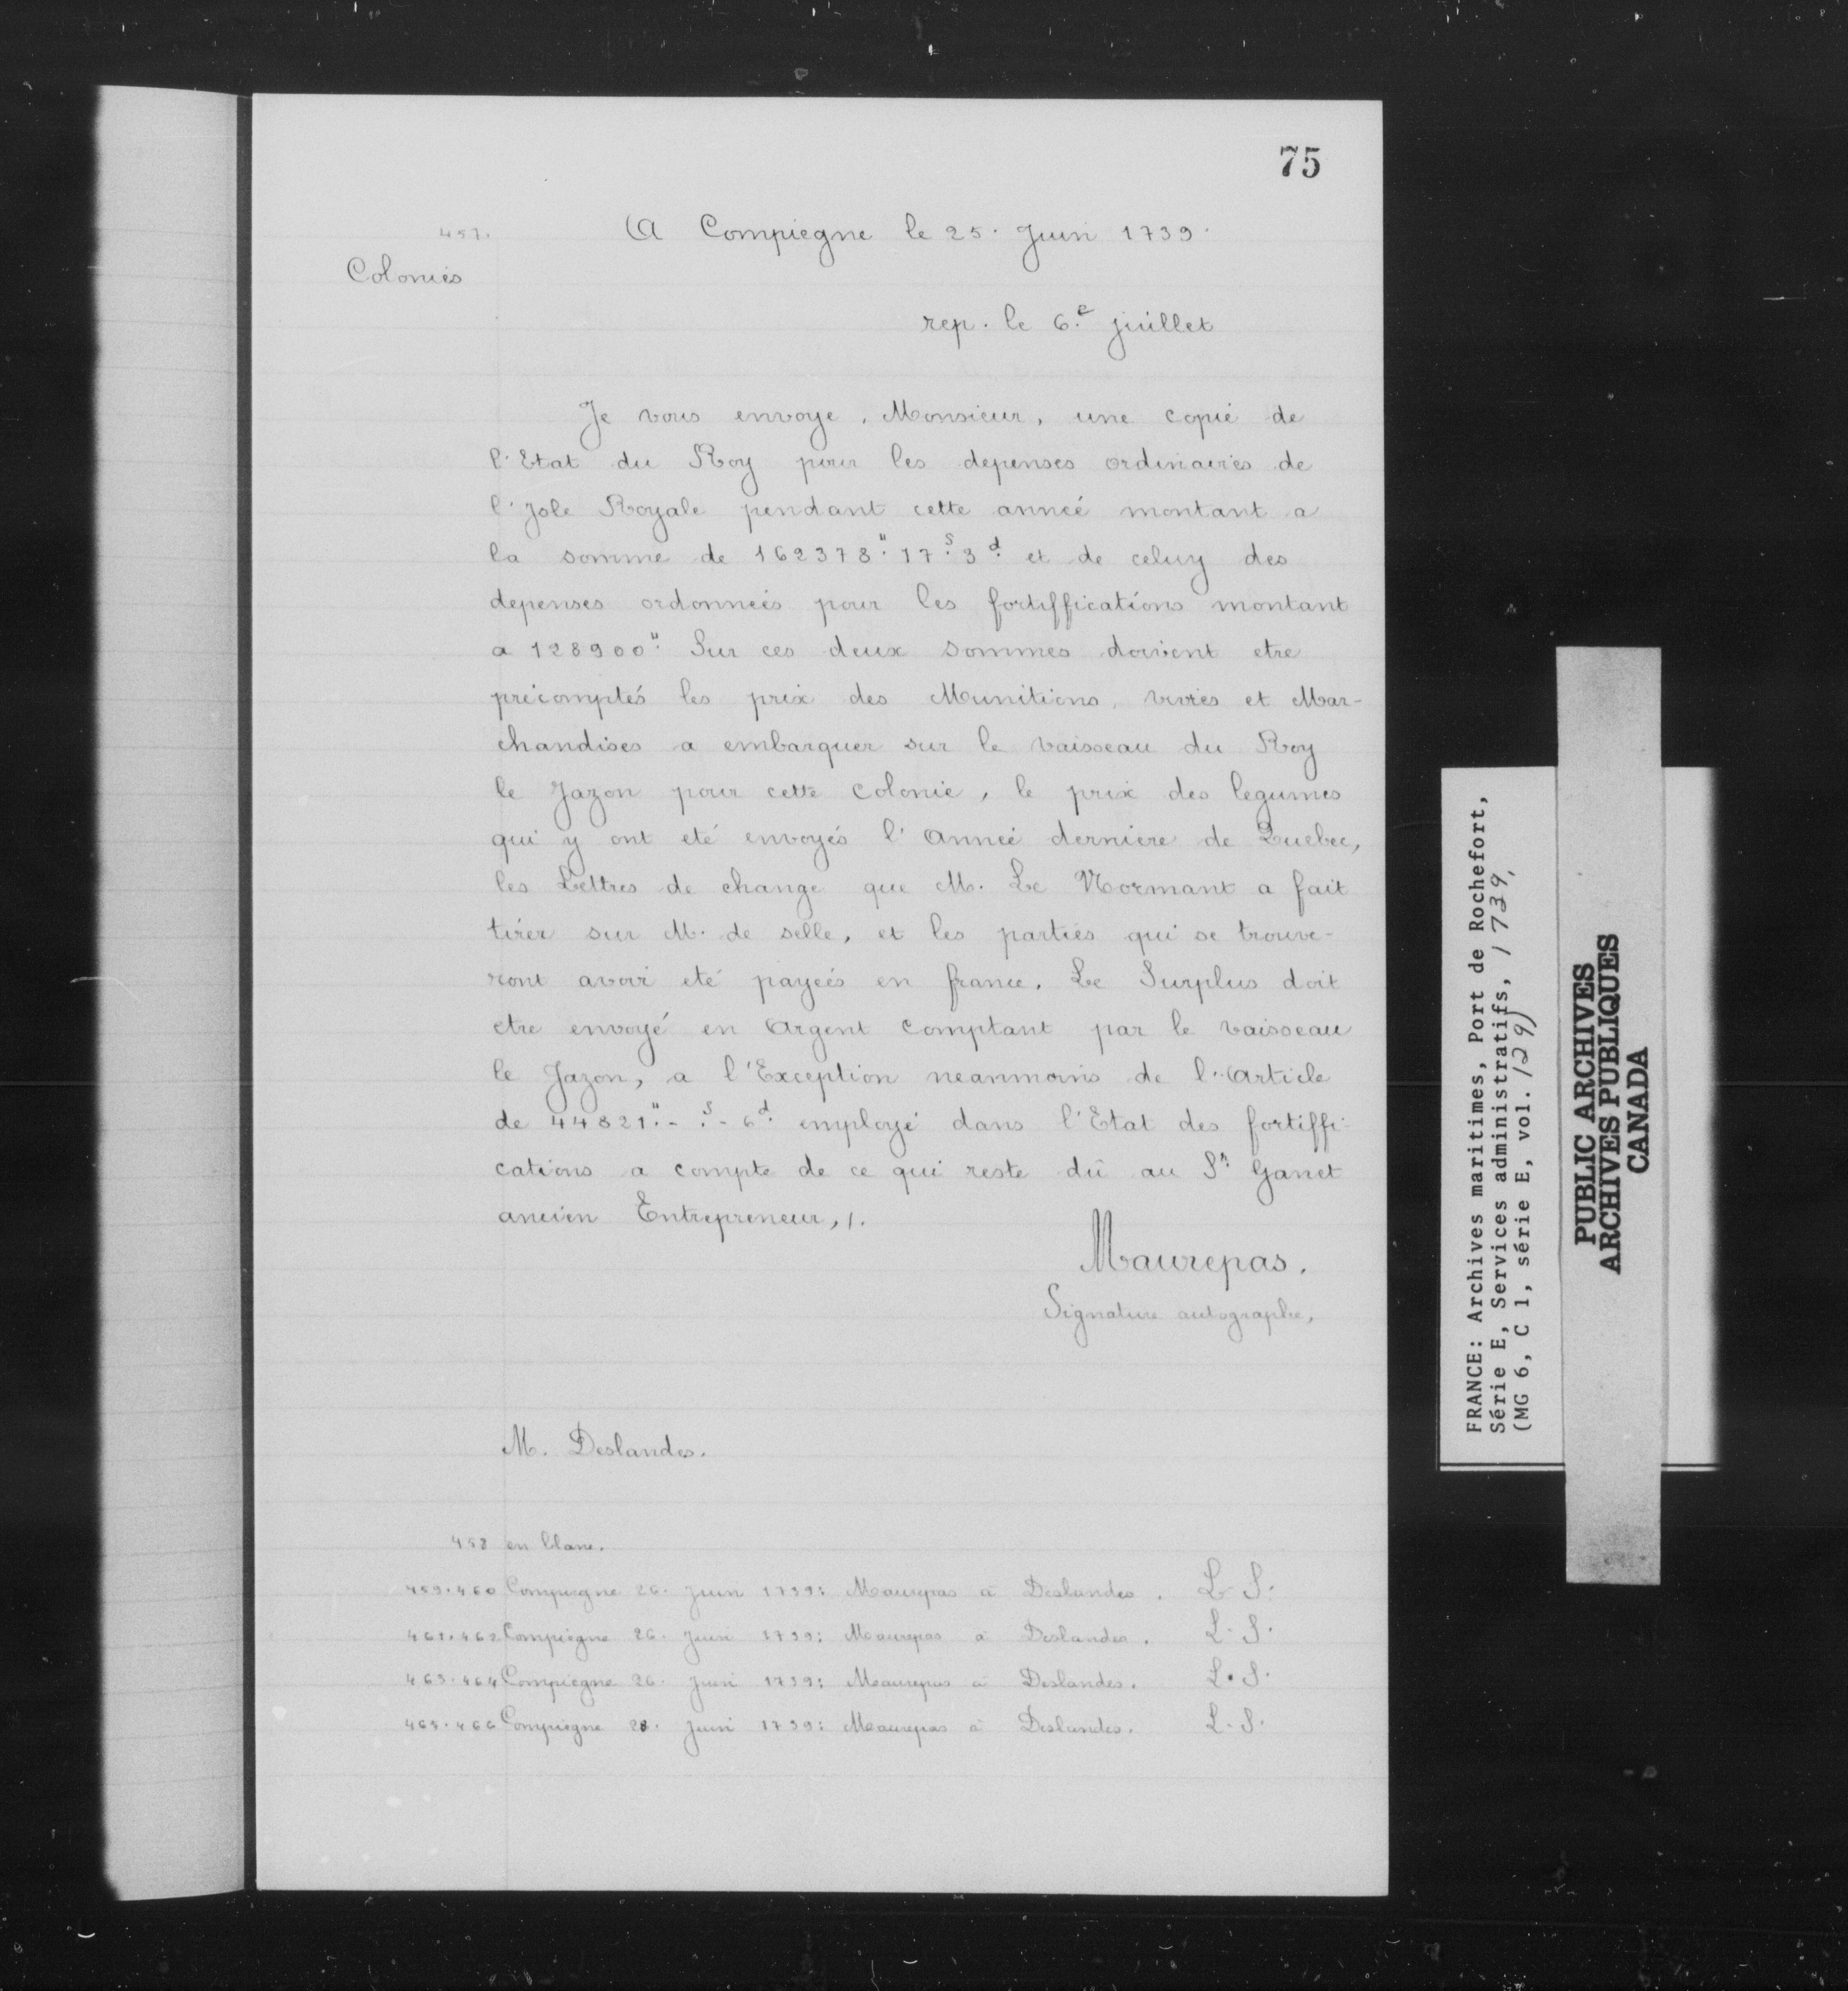 75
457.
A Compiegne le 25. Juin 1739.
Colonies
rep. le 6.e juillet
Je vous envoye, Monsieur, une copie de
l'Etat du Roy pour les depenses ordinaires de
l'Jsle Royale pendant cette année montant a
la somme de 162378.tt 17.s 3.d et de celuy des
depenses ordonneés pour les fortiffications montant
a 128900.tt Sur ces deux sommes doivent etre
précomptés les prix des Munitions, vivres et Mar-
chandises a embarquer sur le vaisseau du Roy
le Jazon pour cette colonie, le prix des legumes
qui y ont eté envoyés l'Année derniere de Quebec,
les Lettres de change que M. Le Normant a fait
tirer sur M. de selle, et les parties qui se trouve-
ront avoir eté payeés en france. Le Surplus doit
etre envoyé en Argent comptant par le vaisseau
le Jazon, a l'Exception neanmoins de l'Article
de 44821.tt - .s - 6.d employé dans l'Etat des fortiffi-
cations a compte de ce qui reste dû au S.r Ganet
ancien Entrepreneur, /.
Maurepas.
Signature autographe,
M. Deslandes.
458 en blanc.
459.460 Compiegne 26. Juin 1739: Maurepas à Deslandes. L.S.
461.462 Compiègne 26. Juin 1739: Maurepas à Deslandes. L.S.
463.464 Compiegne 26. Juin 1739: Maurepas à Deslandes. L.S.
465.466 Compiegne 28. Juin 1739: Maurepas à Deslandes. L.S.
FRANCE: Archives maritimes, Port de Rochefort,
Série E, Services administratifs, 1739,
(MG 6, C 1, série E, vol. 129)
PUBLIC ARCHIVES
ARCHIVES PUBLIQUES
CANADA